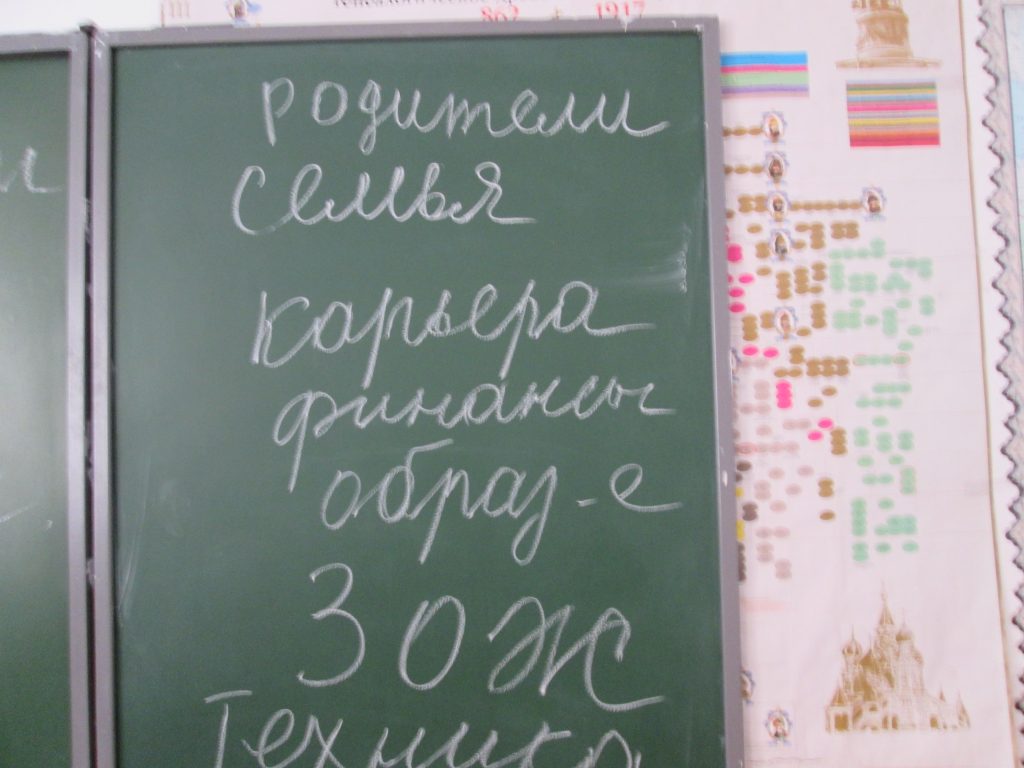 862 1917
родители
семья
карьера
финансы
образ-е
ЗОЖ
Техника